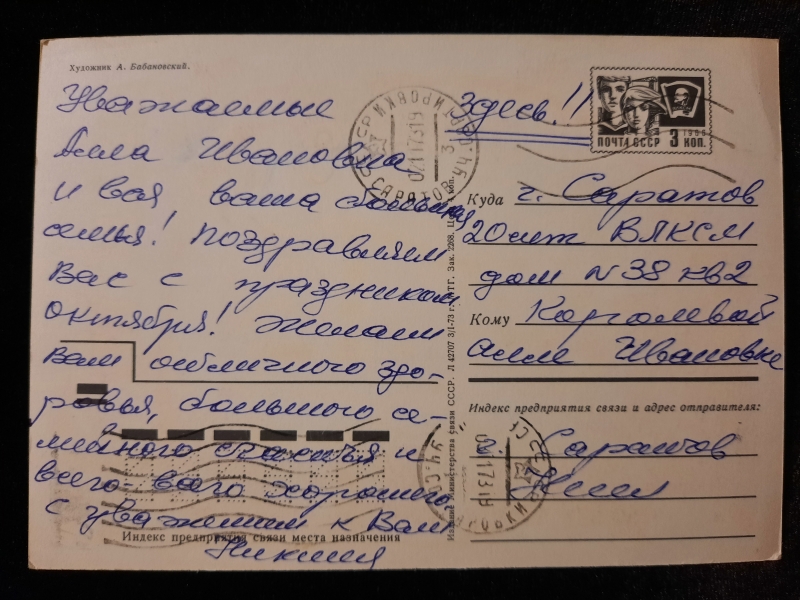 Художник А. Бабановский.
Уважаемые
Алла Ивановна
и вся ваша большая
семья! Поздравляем
Вас с праздником
Октября! Желаем
Вам отличного здо-
ровья, большого се-
мейного счастья и
всего-всего хорошего.
С уважением к Вам
Здесь!!!
1966
ПОЧТА СССР 3 КОП.
САРАТОВ
Куда г. Саратов
20 лет ВЛКСМ
дом N 38 кв 2
Кому Королевой
Алле Ивановне
Индекс предприятия связи и адрес отправителя:
г. Саратов
Индекс предприятия связи места назначения
Издание Министерства связи СССР. Л 42707 3/I-73 г. Зак. 2268. коп.